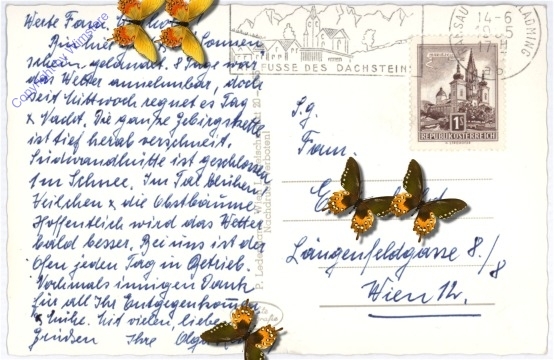 Werte Fam.
sonnen,
schein gelandet. 8 Tage war
das Wetter annehmbar, doch
seit Mittwoch regnet es Tag
x Nacht. Die ganze Gebirgskette
ist tief herab verschneit.
Südwandhütte ist geschlossen
1m Schnee. Im Tal blühen
Veilchen x die Obstbäume
Hoffentlich wird das Wetter
bald besser. Bei uns ist der
Ofen jeden Tag in Betrieb.
Nochmals innigen Dank
für all Ihr Entgegenkommen
x Mühe. Mit vielen lieben
Grüßen Ihre
Copyright by
P. Lede Wien
Nachdruck verboten!
FUSSE DES DACHSTEIN
RAMSAU
LADMING
14-6
17
1S
REPUBLIK ÖSTERREICH
S.g.
Fam.
Längenfeldgasse 8./8
Wien 12.